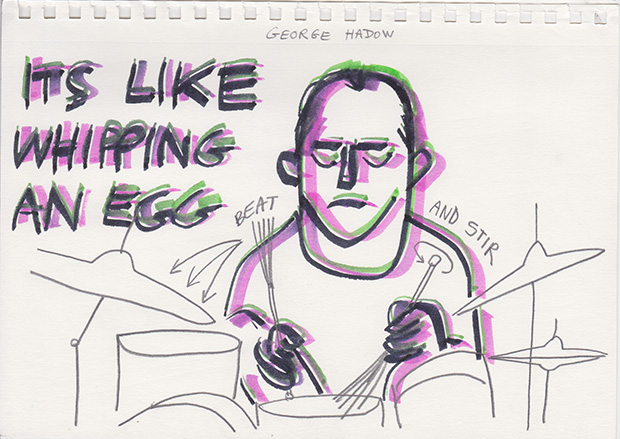 GEORGE HADOW
ITS LIKE
WHIPPING
AN EGG
BEAT
AND STIR